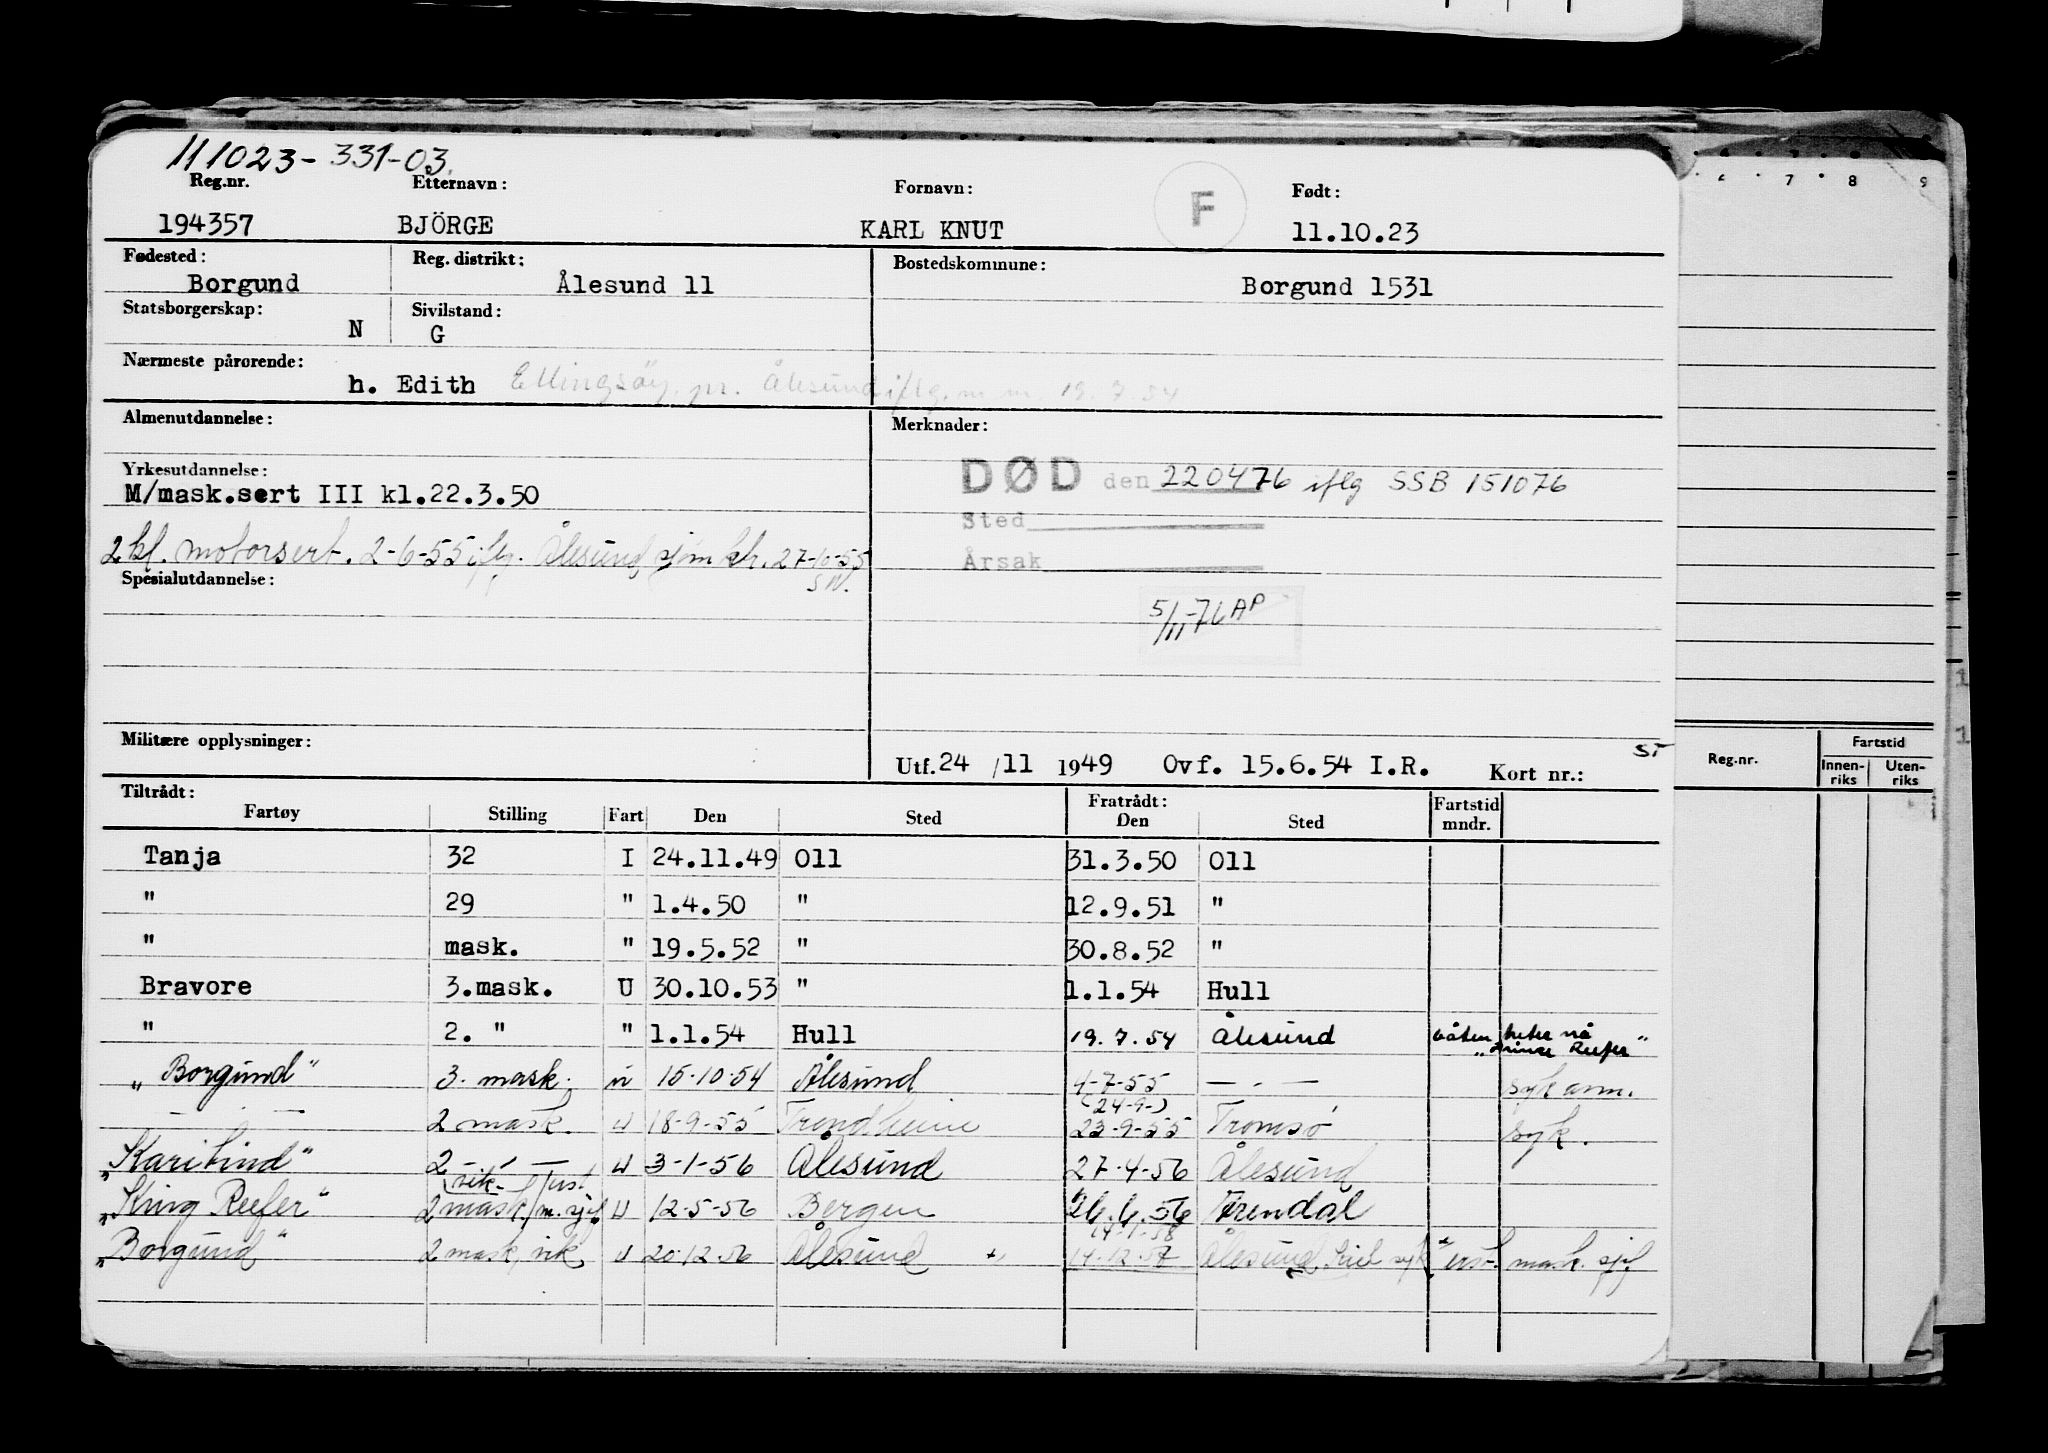 111023-331-03.
Reg.nr. Etternavn: Fornavn: F Født:
194357 BJÖRGE KARL KNUT 11.10.23
Fødested: Reg. distrikt: Bostedskommune:
Borgund Ålesund 11 Borgund 1531
Statsborgerskap: Sivilstand:
N G
Nærmeste pårørende:
h. Edith Ellingsöy. pr. Ålesund iflg. m m 19.7.54
Almenutdannelse: Merknader:
Yrkesutdannelse:
M/mask.sert III kl.22.3.50
DØD den 220476 iflg SSB 151076
Sted
2 kl. motorsert. 2-6-55 iflg. Ålesund sjøm ktr. 27-10-55
SN.
Årsak
Spesialutdannelse:
5/11-76 AP
Militære opplysninger:
Utf. 24 /11 1949 Ovf. 15.6.54 I.R. Kort nr.:
Reg.nr. Fartstid
Innen-riks Uten-riks
6 7 8 9
Tiltrådt: Fratrådt:
Fartøy Stilling Fart Den Sted Den Sted Fartstid mndr.
Tanja 32 I 24.11.49 O11 31.3.50 O11
" 29 " 1.4.50 " 12.9.51 "
" mask. " 19.5.52 " 30.8.52 "
Bravore 3.mask. U 30.10.53 " 1.1.54 Hull
" 2. " " 1.1.54 Hull 19.7.54 Ålesund båten heter nå "Prince Reefer"
"Borgund" 3. mask. u 15-10-54 Ålesund 4-7-55 — . — syk avm.
— . — 2 mask. u 18-9-55 Trondheim (24-9-) 23-9-55 Tromsö syk.
"Karitind" 2 — . — u 3-1-56 Ålesund 27-4-56 Ålesund
"King Reefer" 2 mask. (vik- / m.sjef u 12-5-56 Bergen 26.6.56 Arendal
"Borgund" 2 mask, vik u 20-12-56 Ålesund 14-1-58 14-12-57 Ålesund syk mask. sjef